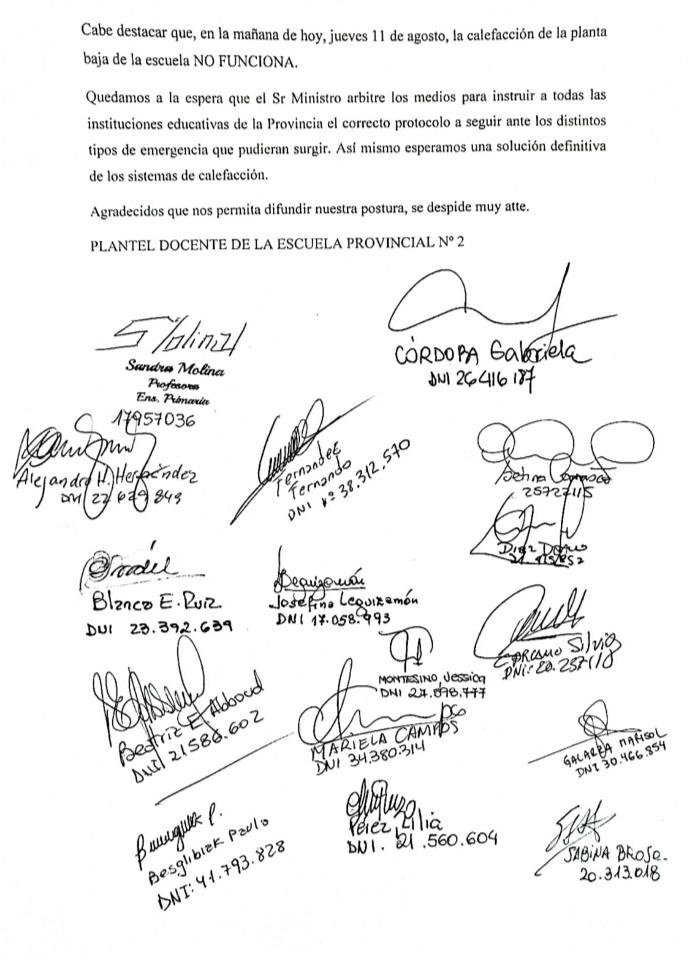 Cabe destacar que, en la mañana de hoy, jueves 11 de agosto, la calefacción de la planta
baja de la escuela NO FUNCIONA.
Quedamos a la espera que el Sr Ministro arbitre los medios para instruir a todas las
instituciones educativas de la Provincia el correcto protocolo a seguir ante los distintos
tipos de emergencia que pudieran surgir. Así mismo esperamos una solución definitiva
de los sistemas de calefacción.
Agradecidos que nos permita difundir nuestra postura, se despide muy atte.
PLANTEL DOCENTE DE LA ESCUELA PROVINCIAL Nº 2
SMolina
Sandra Molina
Profesora
Ens. Primaria
17957036
CÓRDOBA Gabriela
DNI 26416187
Alejandro H. Hernéndez
DNI 22 629 849
Fernandez
Fernando
DNI Nº 38.312.570
25727115
Diaz
Blanco E. Ruiz
DUI 23.392.639
Leguizamón
Josefina Leguizamón
DNI 17.058.993
MONTESINO, Jessica
DNI
Silvia
DNi:
Beatriz E. Abboud
DNI 21586.602
MARIELA CAMPOS
DNI 34.380.314
GALARZA MARISOL
DNI 30.466.854
Besglibiek Paulo
DNI: 41.793.828
Pérez, Lilia
DNI. 21.560.604
SABINA BROSO.
20.313.018